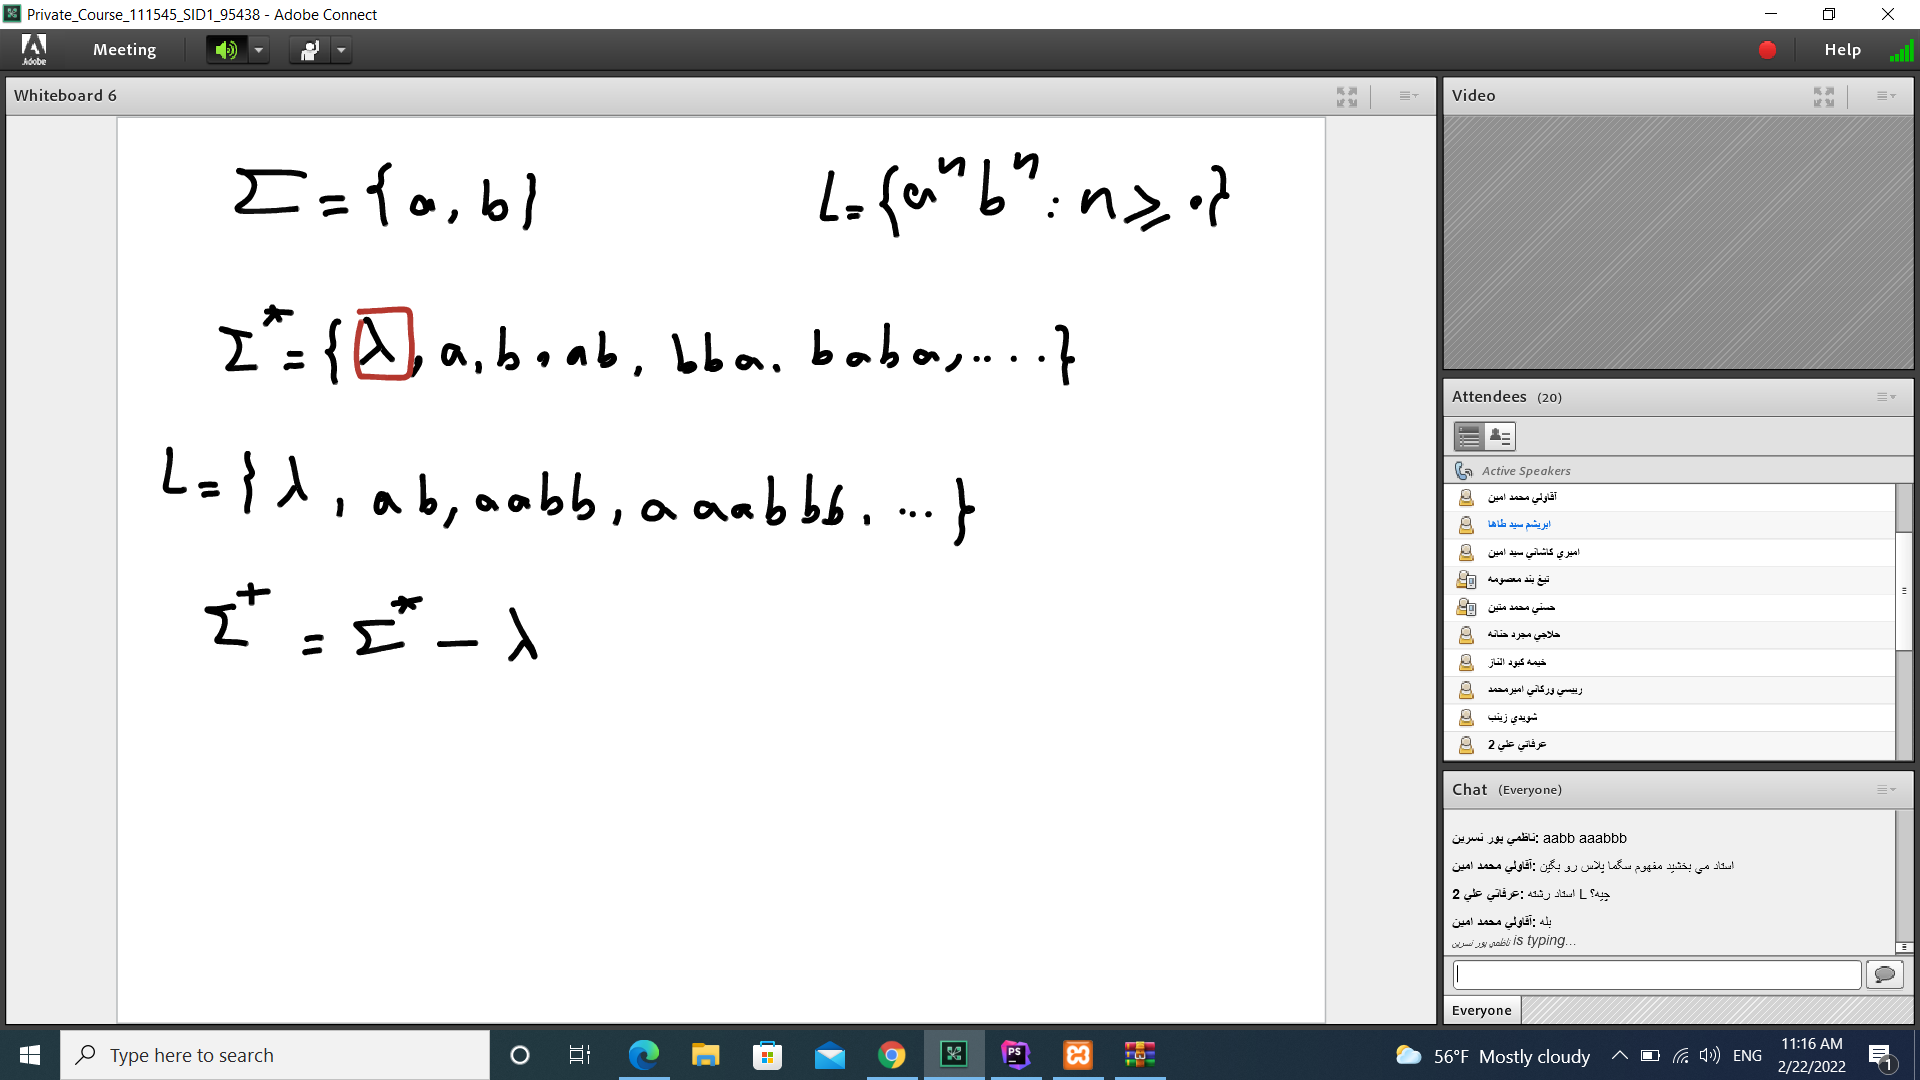 Private_Course_111545_SID1_95438 - Adobe Connect
Adobe Meeting Help
Whiteboard 6
Σ = {a, b}
L = {aⁿbⁿ : n ≥ ۰}
Σ* = {λ, a, b, ab, bba, baba, ....}
L = {λ, ab, aabb, aaabbb, ...}
Σ⁺ = Σ* − λ
Video
Attendees (20)
Active Speakers
آقاولي محمد امين
ابريشم سيد طاها
اميري كاشاني سيد امين
تيغ بند معصومه
حسني محمد متين
حلاجي مجرد حنانه
خيمه كبود الناز
رييسي وركاني اميرمحمد
شويدي زينب
عرفاتي علي 2
Chat (Everyone)
ناظمي پور نسرين: aabb aaabbb
آقاولي محمد امين: استاد مي بخشيد مفهوم سگما پلاس رو بگين
عرفاتي علي 2: استاد رشته L چيه؟
آقاولي محمد امين: بله
ناظمي پور نسرين is typing...
Everyone
Type here to search
PS
56°F Mostly cloudy
ENG
11:16 AM
2/22/2022
1